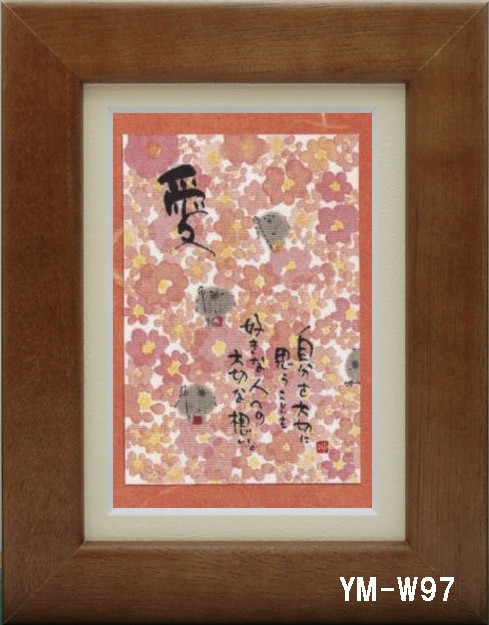 愛
自分を大切に
思うことも
好きな人への
大切な想い。
YM-W97